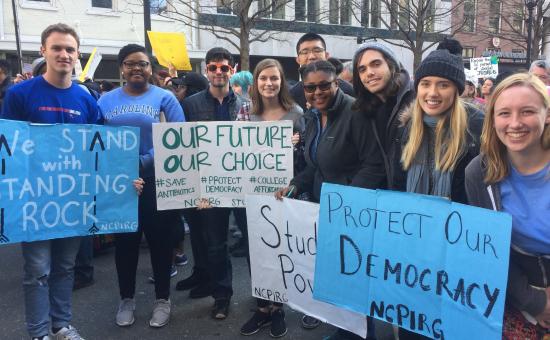 We STAND
with
STANDING
ROCK
NCPIRG
OUR FUTURE
OUR CHOICE
#SAVE ANTIBIOTICS
#PROTECT DEMOCRACY
#COLLEGE
NCPIRG STU
Stud
Pow
NCPIRG
PROTECT OUR
DEMOCRACY
NCPIRG